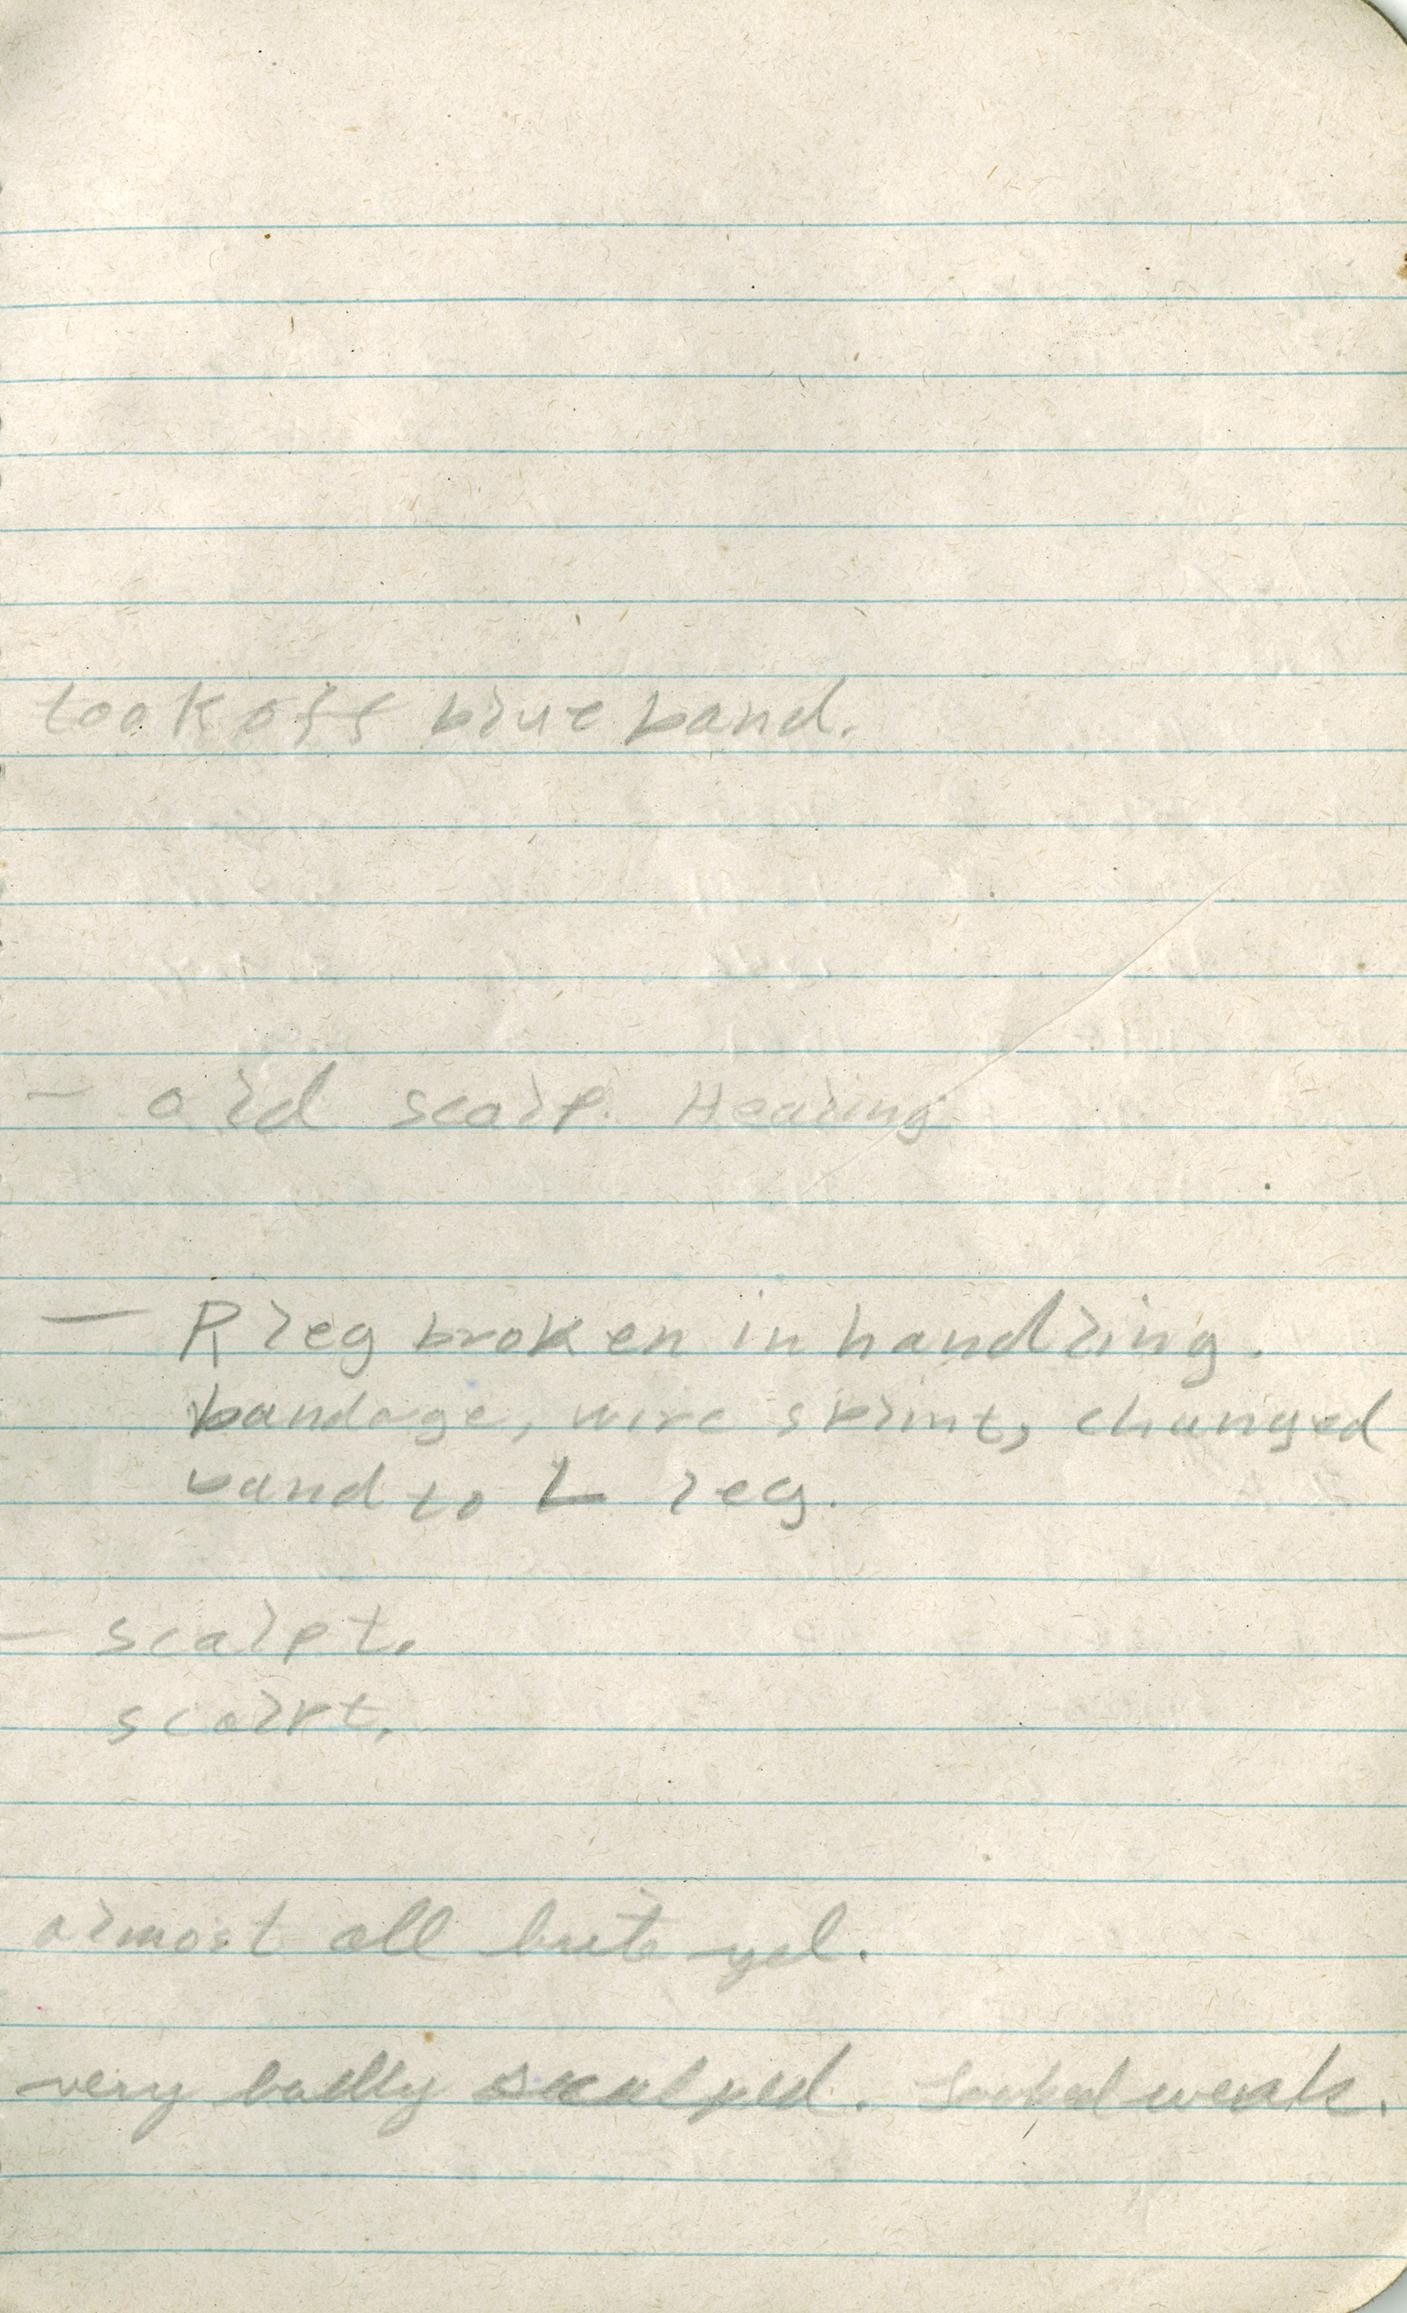 took off blue band.
- old scalp. Healing
- R leg broken in handling.
bandage, wire splint, changed
band to L leg.
- scalpt.
scalpt.
almost all brite yel.
very badly scalped. Looked weak.